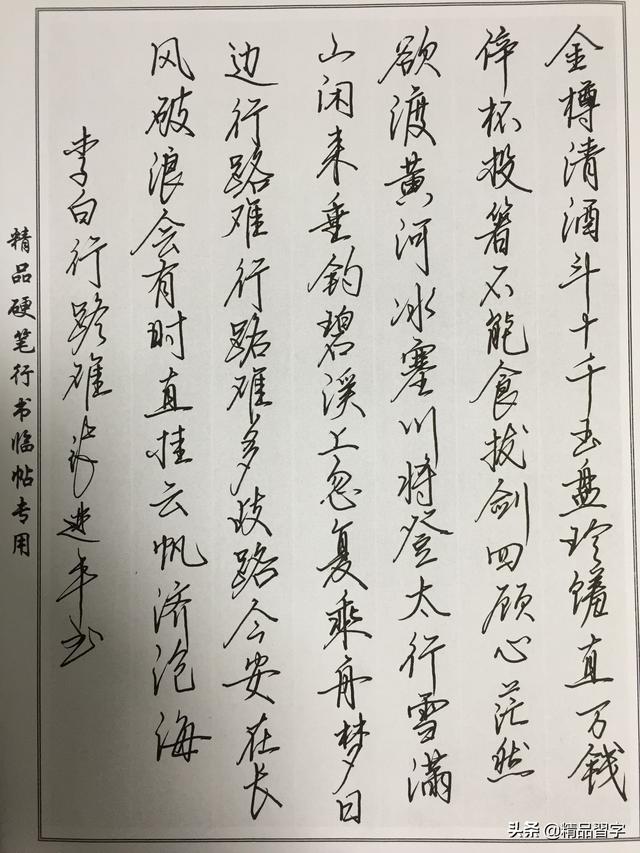 金樽清酒斗十千玉盘珍馐直万钱
停杯投箸不能食拔剑四顾心茫然
欲渡黄河冰塞川将登太行雪满
山闲来垂钓碧溪上忽复乘舟梦日
边行路难行路难多歧路今安在长
风破浪会有时直挂云帆济沧海
李白行路难
精品硬笔行书临帖专用
头条 @精品習字